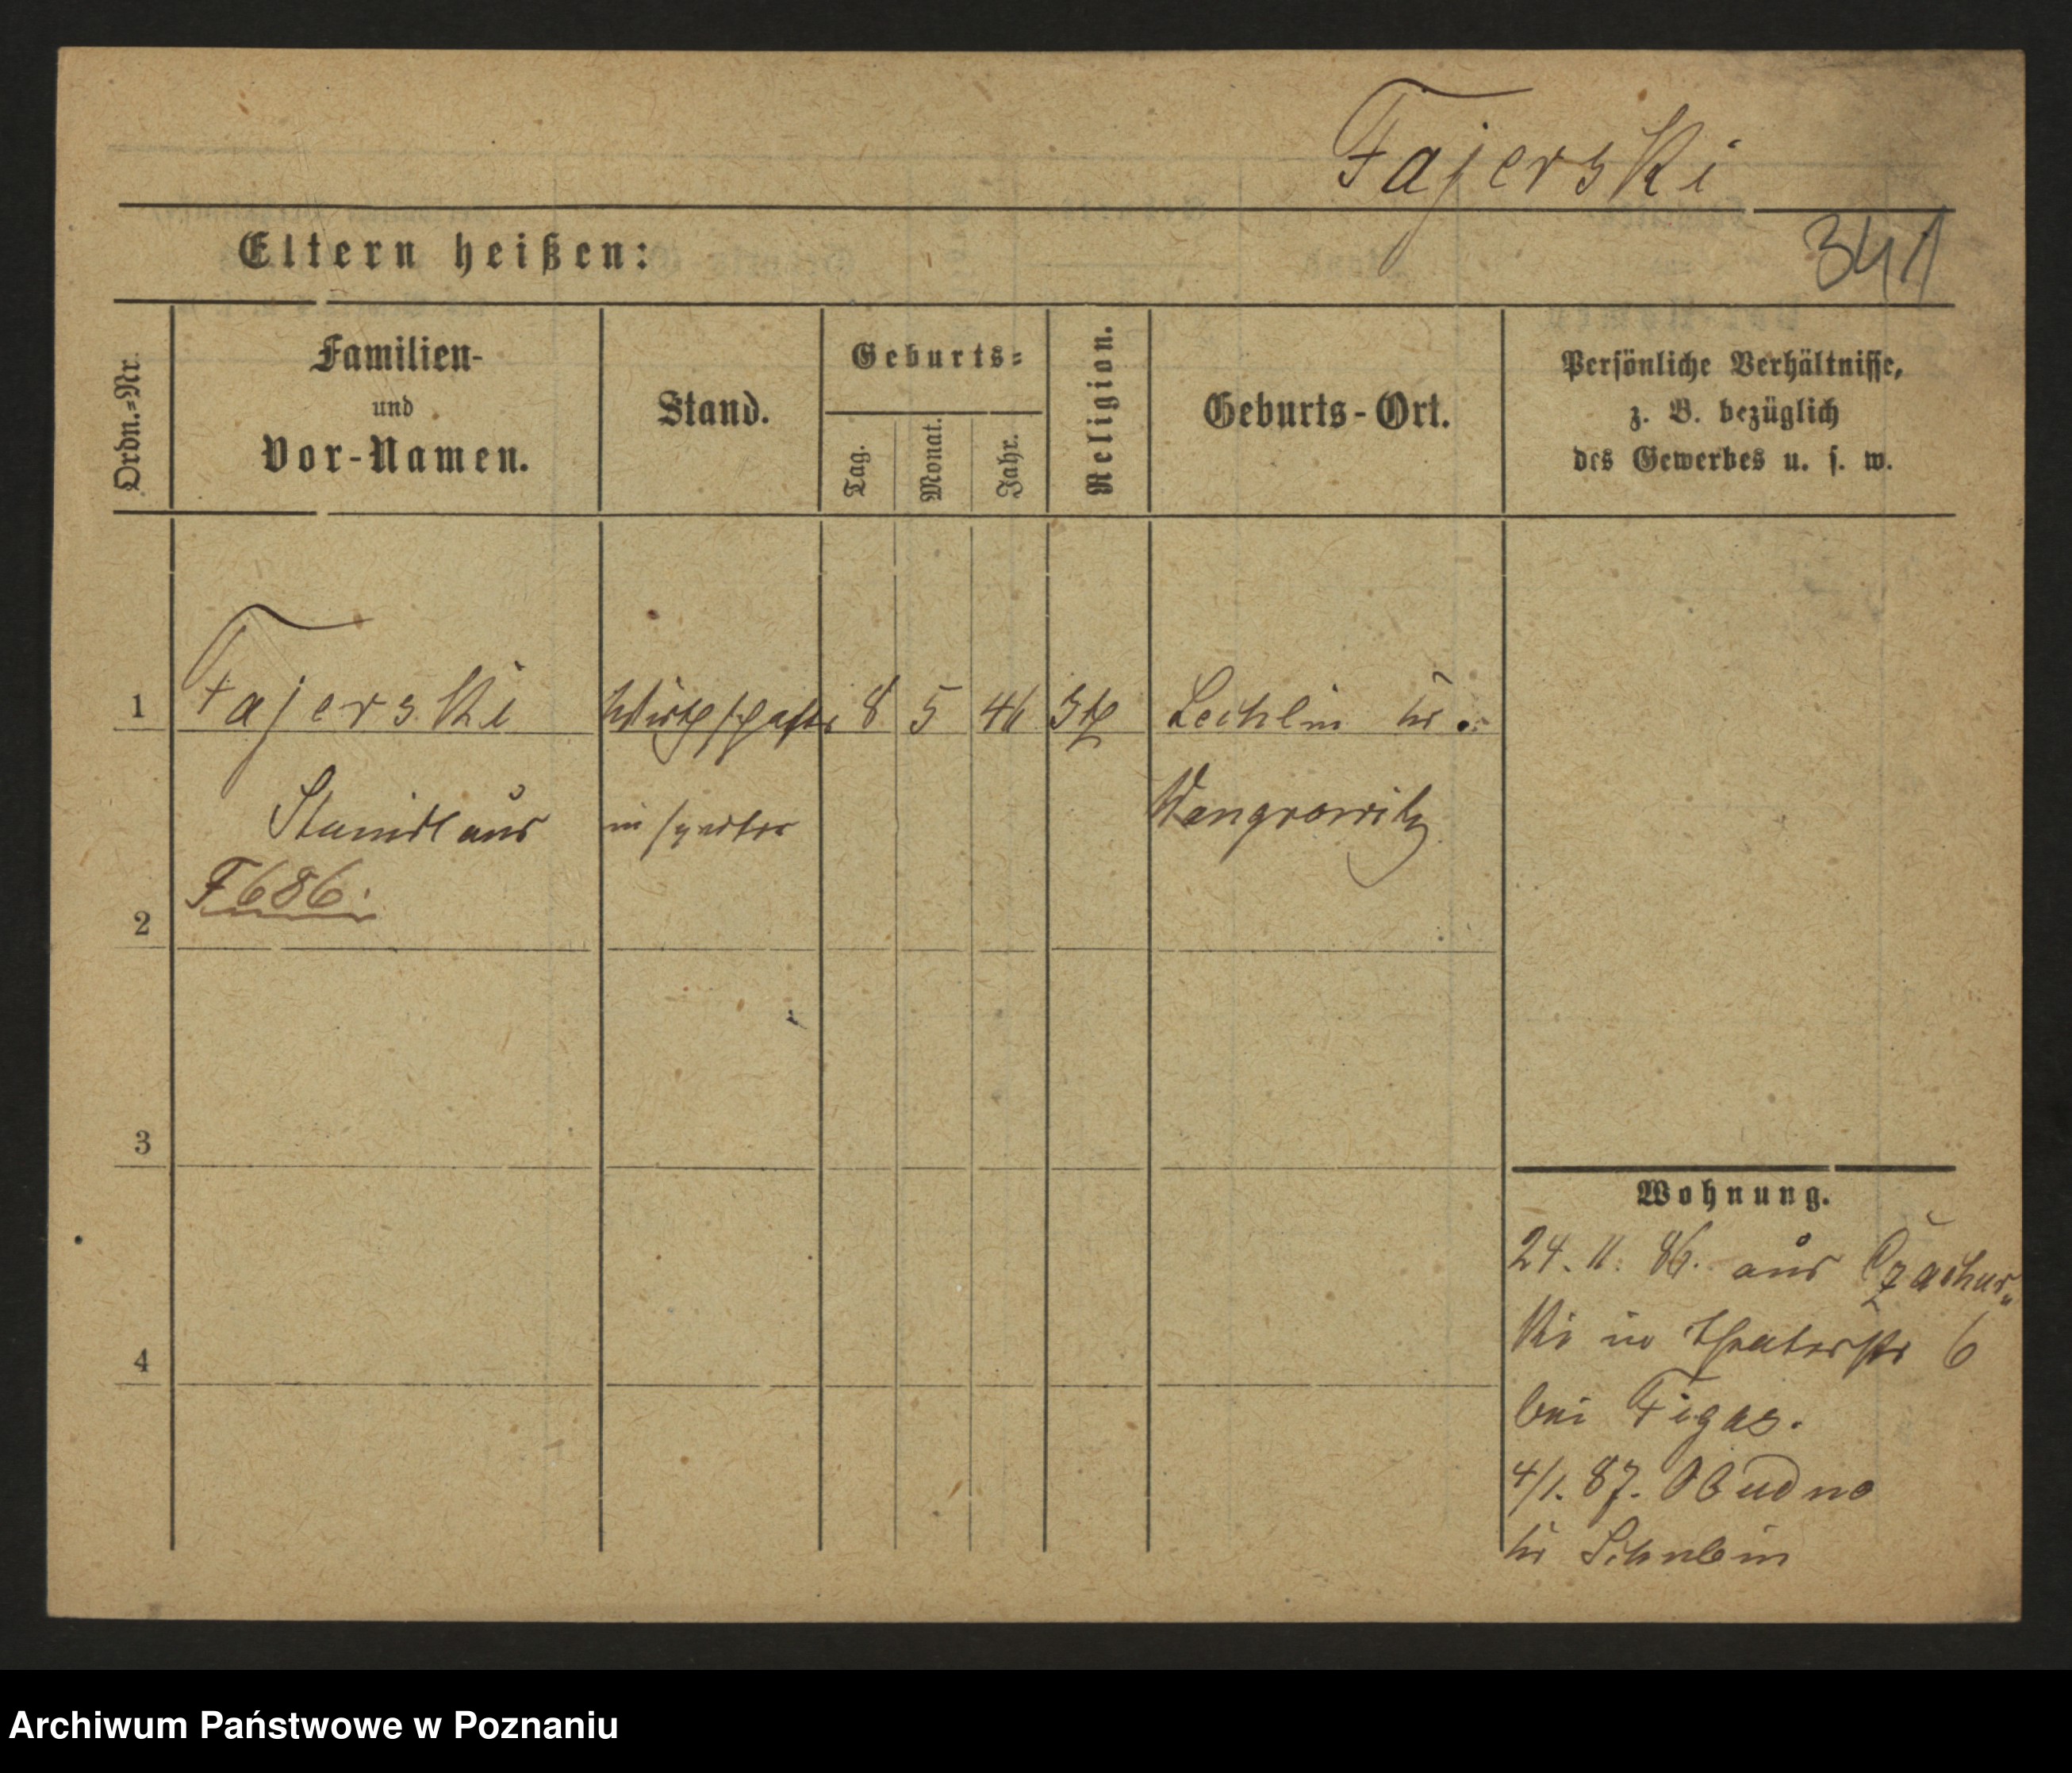 Fajerski
341
Eltern heißen:
Ordn.=Nr.
Familien-
und
Vor-Namen.
Stand.
Geburts=
Tag.
Monat.
Jahr.
Religion.
Geburts-Ort.
Persönliche Verhältnisse,
z. B. bezüglich
des Gewerbes u. s. w.
1 Fajerski Wirthschafts 8 5 46 Lechlin Kr.
Stanislaus inspector Wangrowitz
F 686.
2
3
4
Wohnung.
24. 11. 86. aus Czachur„
ki in Theaterstr 6
bei Figas.
4/1. 87. Obudno
Kr Schubin
Archiwum Państwowe w Poznaniu